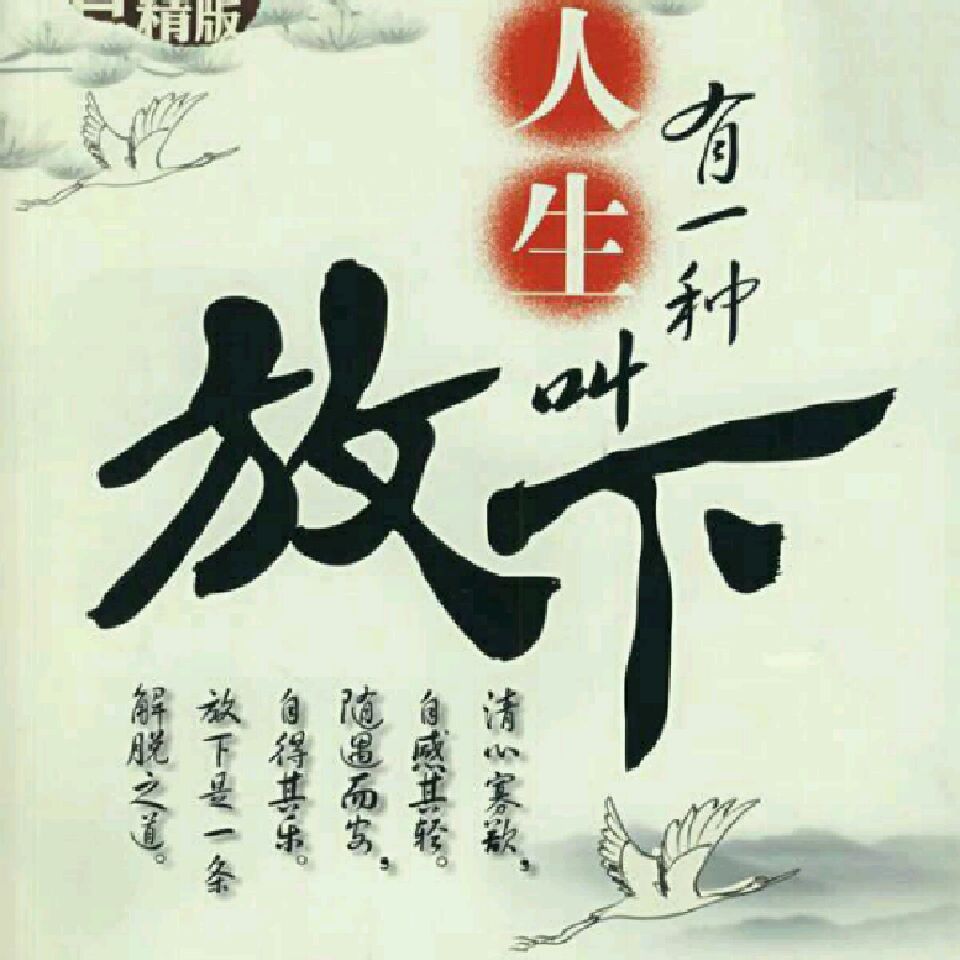 精版
人生
有一种
叫
放下
清心寡欲，
自感其轻。
随遇而安，
自得其乐。
放下是一条
解脱之道。